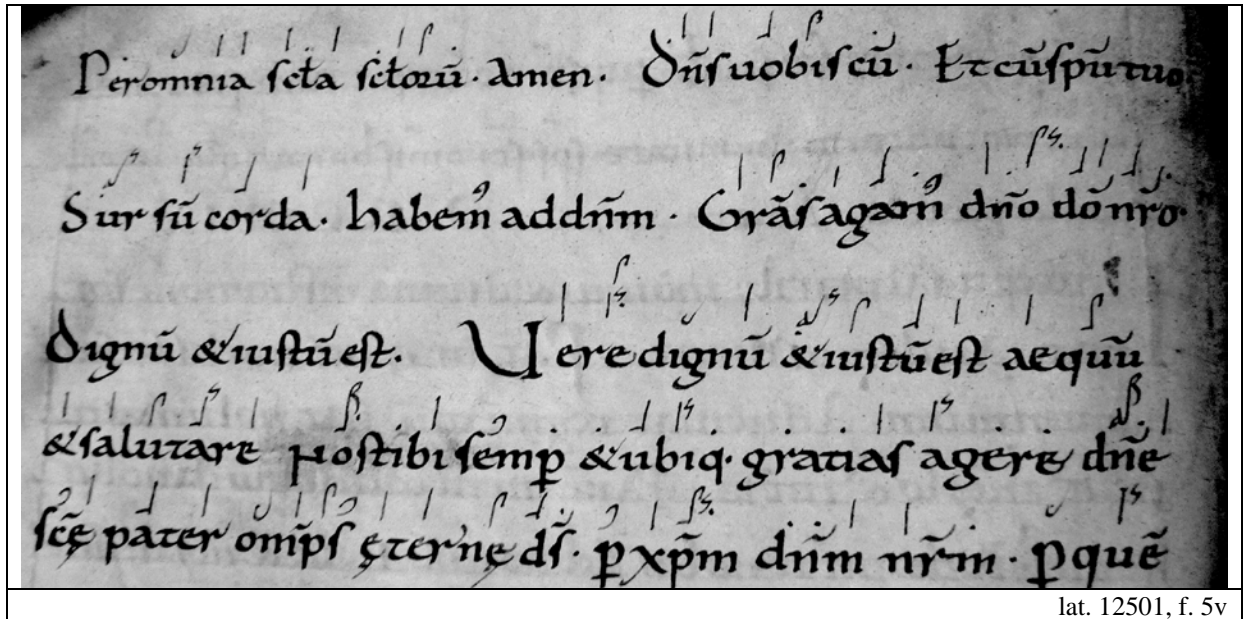 Per omnia sc̄ła sc̄łorū · Amen · Dn̄s uobiscū · Et cū sp̄u tuo.
Sursū corda · habem᷒ ad dn̄m · Grās agam᷒ dn̄o dō nr̄o·
Dignū & iustū est. Vere dignū & iustū est aequū
& salutare Nos tibi semp̲ & ubiq· gratias agere dn̄e
sc̄ę pater om̄ps ęternę ds̄ · p̲ xp̄m dn̄m nr̄m · p̲ quē
lat. 12501, f. 5v